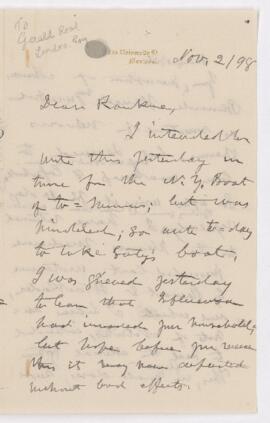 To
Gerald
London
University
Nov. 2/98
Dear
I intended to
write this yesterday in
time for the N.Y. Boat
of to=; but was
hindered; so write to=day
to boat.
I was grieved yesterday
to learn that
had invaded your household,
but hope before you receive
this it may have departed
without bad effects.